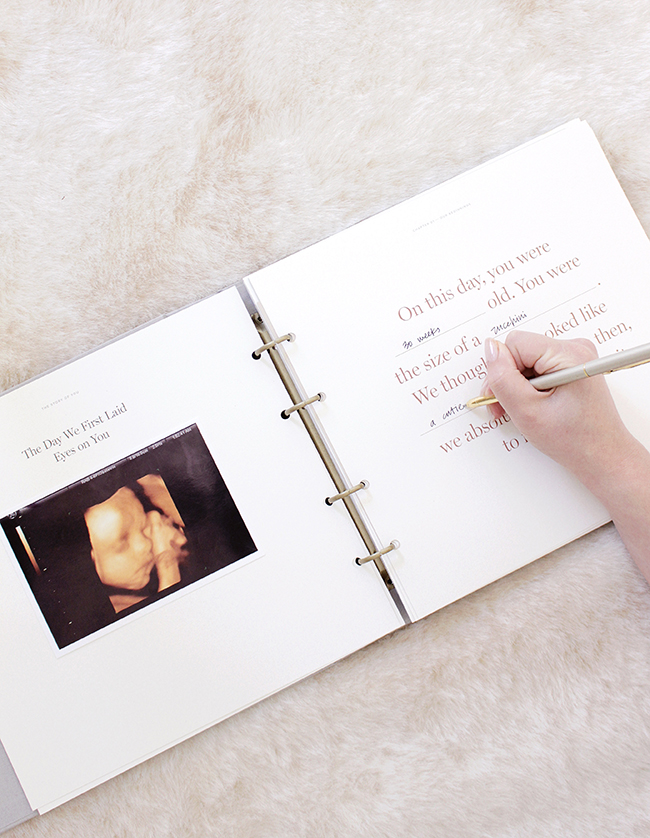 THE STORY OF YOU
The Day We First Laid
Eyes on You
On this day, you were
30 weeks old. You were
the size of a zucchini.
We thought looked like
a cutie then,
we
to